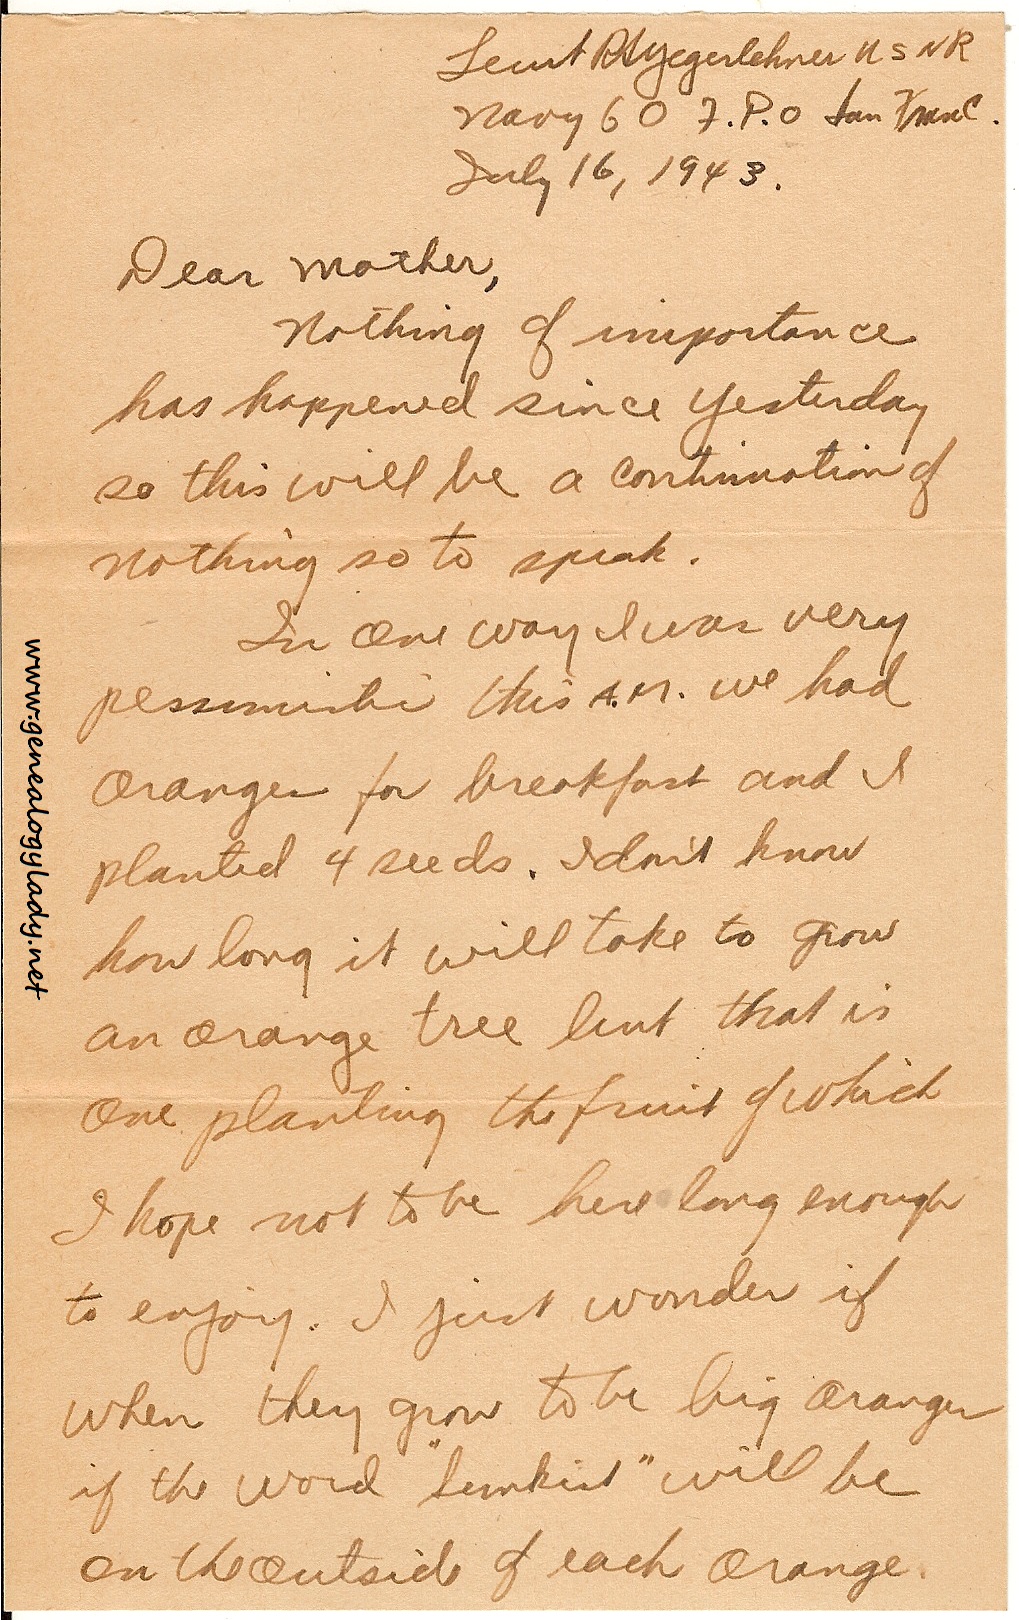 Lieut RWYegerlehner USNR
Navy 60 F.P.O San Franc.
July 16, 1943.
Dear Mother,
Nothing of importance
has happened since yesterday
so this will be a continuation of
nothing so to speak.
In one way I was very
pessimistic this A.M. we had
oranges for breakfast and I
planted 4 seeds. I don't know
how long it will take to grow
an orange tree but that is
one planting the fruit of which
I hope not to be here long enough
to enjoy. I just wonder if
when they grow to be big oranges
if the word "Sunkist" will be
on the outside of each orange.
www.genealogylady.net